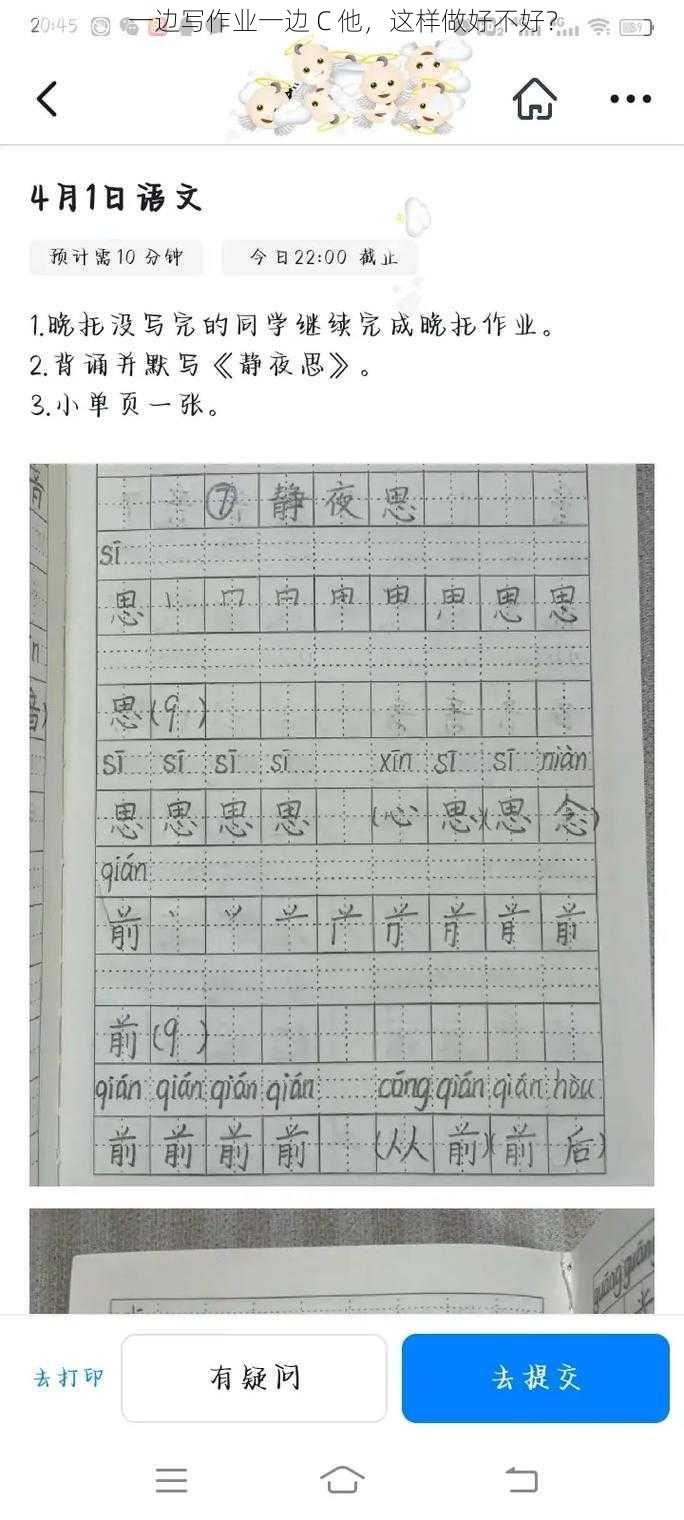 20:45
一边写作业一边 C 他，这样做好不好？
4月1日语文
预计需10 分钟
今日22:00 截止
1.晚托没写完的同学继续完成晚托作业。
2.背诵并默写《静夜思》。
3.小单页一张。
⑦ 静夜思
sī
思 丨 冂 日 田 田 思 思
思(9 )
sī sī sī sī xīn sī sī niàn
思 思 思 思 (心 思)(思 念)
qián
前 前
前(9 )
qián qián qián qián cóng qián qián hòu
前 前 前 前 (从 前)(前 后)
去打印
有疑问
去提交